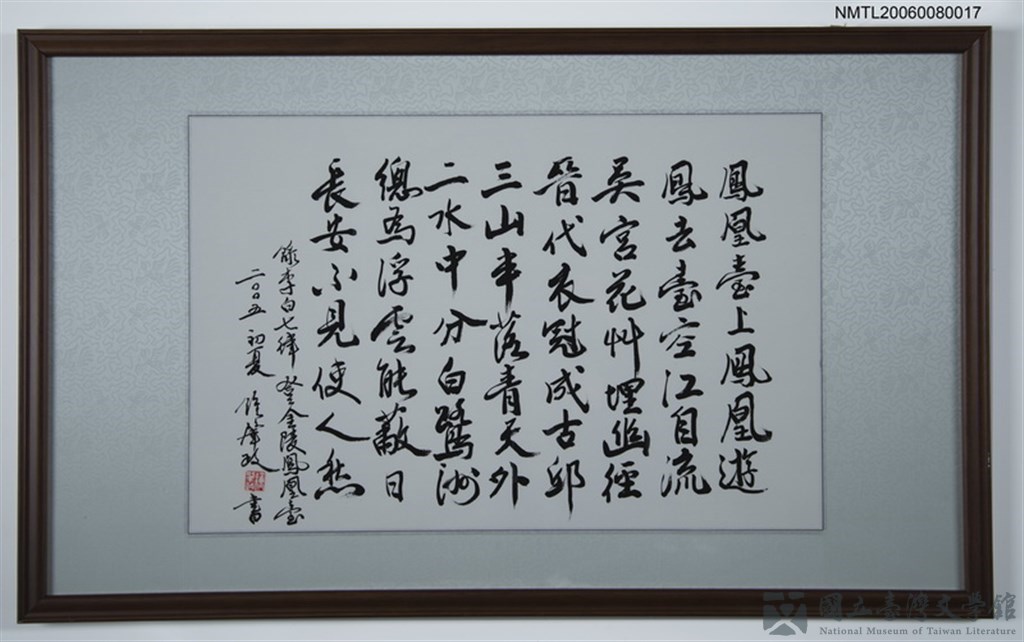 NMTL20060080017
鳳凰臺上鳳凰遊
鳳去臺空江自流
吴宮花艸埋幽徑
晉代衣冠成古邱
三山半落青天外
二水中分白鷺洲
總為浮雲能蔽日
長安不見使人愁
錄李白七律登金陵鳳凰臺
二〇〇五初夏
書
國立臺灣文學館
National Museum of Taiwan Literature